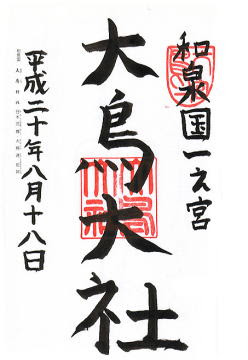 和泉国一之宮
大鳥大社
平成二十年八月十八日